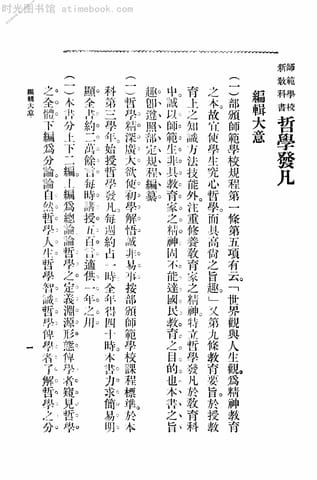 时光图书馆
www.atimebook.com
師範學校
新敎科書
哲學發凡
編輯大意
(一)部頒師範學校規程第一條第五項有云。「世界觀與人生觀爲精神敎育
之本故宜使學生究心哲學而具高尙之旨趣」又第九條敎育要旨於授敎
育上之知識方法技能外注重修養敎育家之精神。特立哲學發凡於敎育科
中誠以師範生非具敎育家之精神固不能達國民敎育之目的也本書之旨
趣卽遵照部定規程編纂。
(一)哲學精深廣大欲使初學解悟誠非易事按部頒師範學校課程標準於本
科第三學年。始授哲學發凡。每週約占一時全年得四十時本書力求簡易明
顯全書約二萬餘言。每時講授五百言適供一年之用。
(一)本書分上下二編上編爲總論論哲學之定義淵源形態俾學者窺見哲學
之全體下編爲分論論自然哲學人生哲學智識哲學俾學者了解哲學之分
編輯大意
一